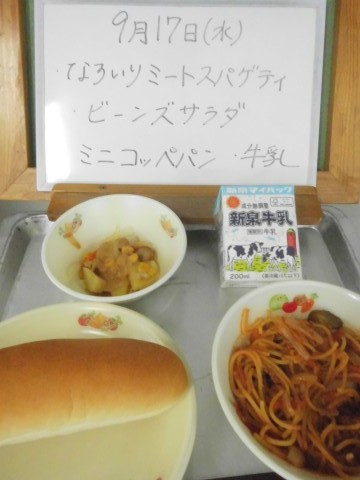 9月17日(水)
・なすいりミートスパゲティ
・ビーンズサラダ
ミニコッペパン ・牛乳
成分無調整
新泉牛乳
牛乳
200ml